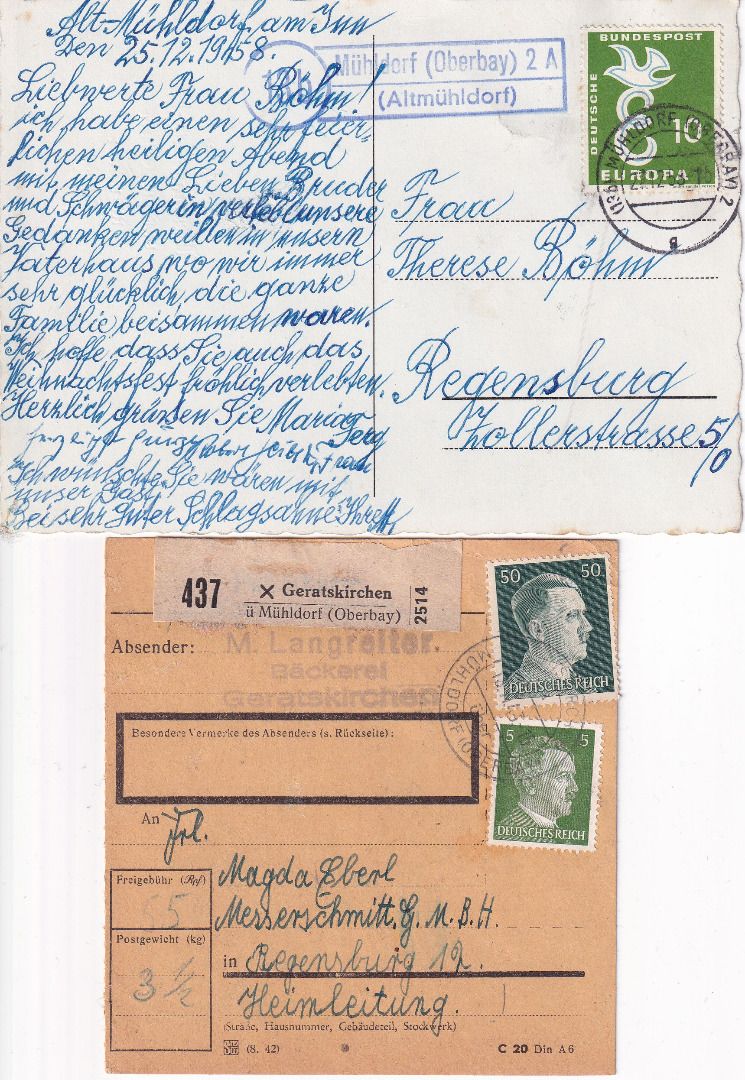 Alt-Mühldorf am Inn
Den 25.12.1958.
Liebwerte Frau Böhm!
ich habe einen sehr feier-
lichen heiligen Abend
mit meinen Lieben Bruder
und Schwägerin verlebt unsere
Gedanken weillen in unsern
Vaterhaus wo wir immer
sehr glücklich, die ganze
Familie beisammen waren.
Ich hoffe dass Sie auch das
Weihnachtsfest fröhlich verlebten.
Herzlich grüßen Sie Maria
Frau
Ich wünschte Sie wären mit
unser Gast
Bei sehr guter Schlagsahne Ihre
Mühldorf (Oberbay) 2 A
(Altmühldorf)
DEUTSCHE BUNDESPOST
10
EUROPA
MÜHLDORF (OBERBAY) 2
a
Frau
Therese Böhm
Regensburg
Zollerstrasse 5/
0
437
× Geratskirchen
ü Mühldorf (Oberbay)
2514
Absender:
M. Langreiter.
Bäckerei
Geratskirchen
50 50
DEUTSCHES REICH
MÜHLDORF (OBERBAY)
5 5
DEUTSCHES REICH
Besondere Vermerke des Absenders (s. Rückseite):
An
Frl.
Magda Eberl
Messerschmitt G.M.B.H.
in Regensburg 12.
Heimleitung.
Freigebühr (Rpf)
55
Postgewicht (kg)
3 ½
(Straße, Hausnummer, Gebäudeteil, Stockwerk)
(8. 42)
C 20 Din A 6